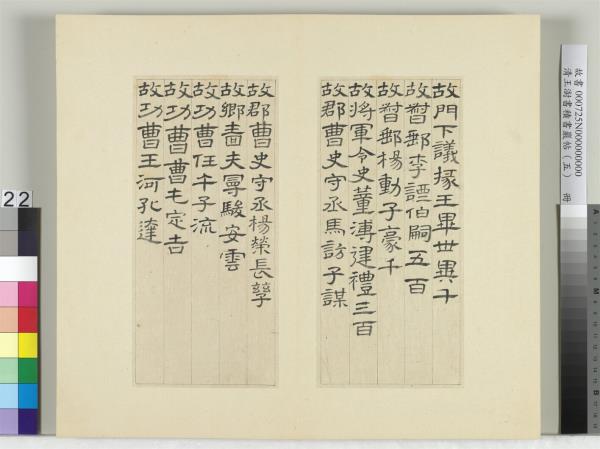 故門下議掾王畢世異千
故督郵李諲伯嗣五百
故督郵楊動子豪千
故將軍令史董溥建禮三百
故郡曹史守丞馬訪子謀
故郡曹史守丞楊榮長孳
故鄉嗇夫曼駿安雲
故功曹任午子流
故功曹曹屯定吉
故功曹王河孔達
故書000725N000000000 冊
清王澍書積書巖帖(五)
22